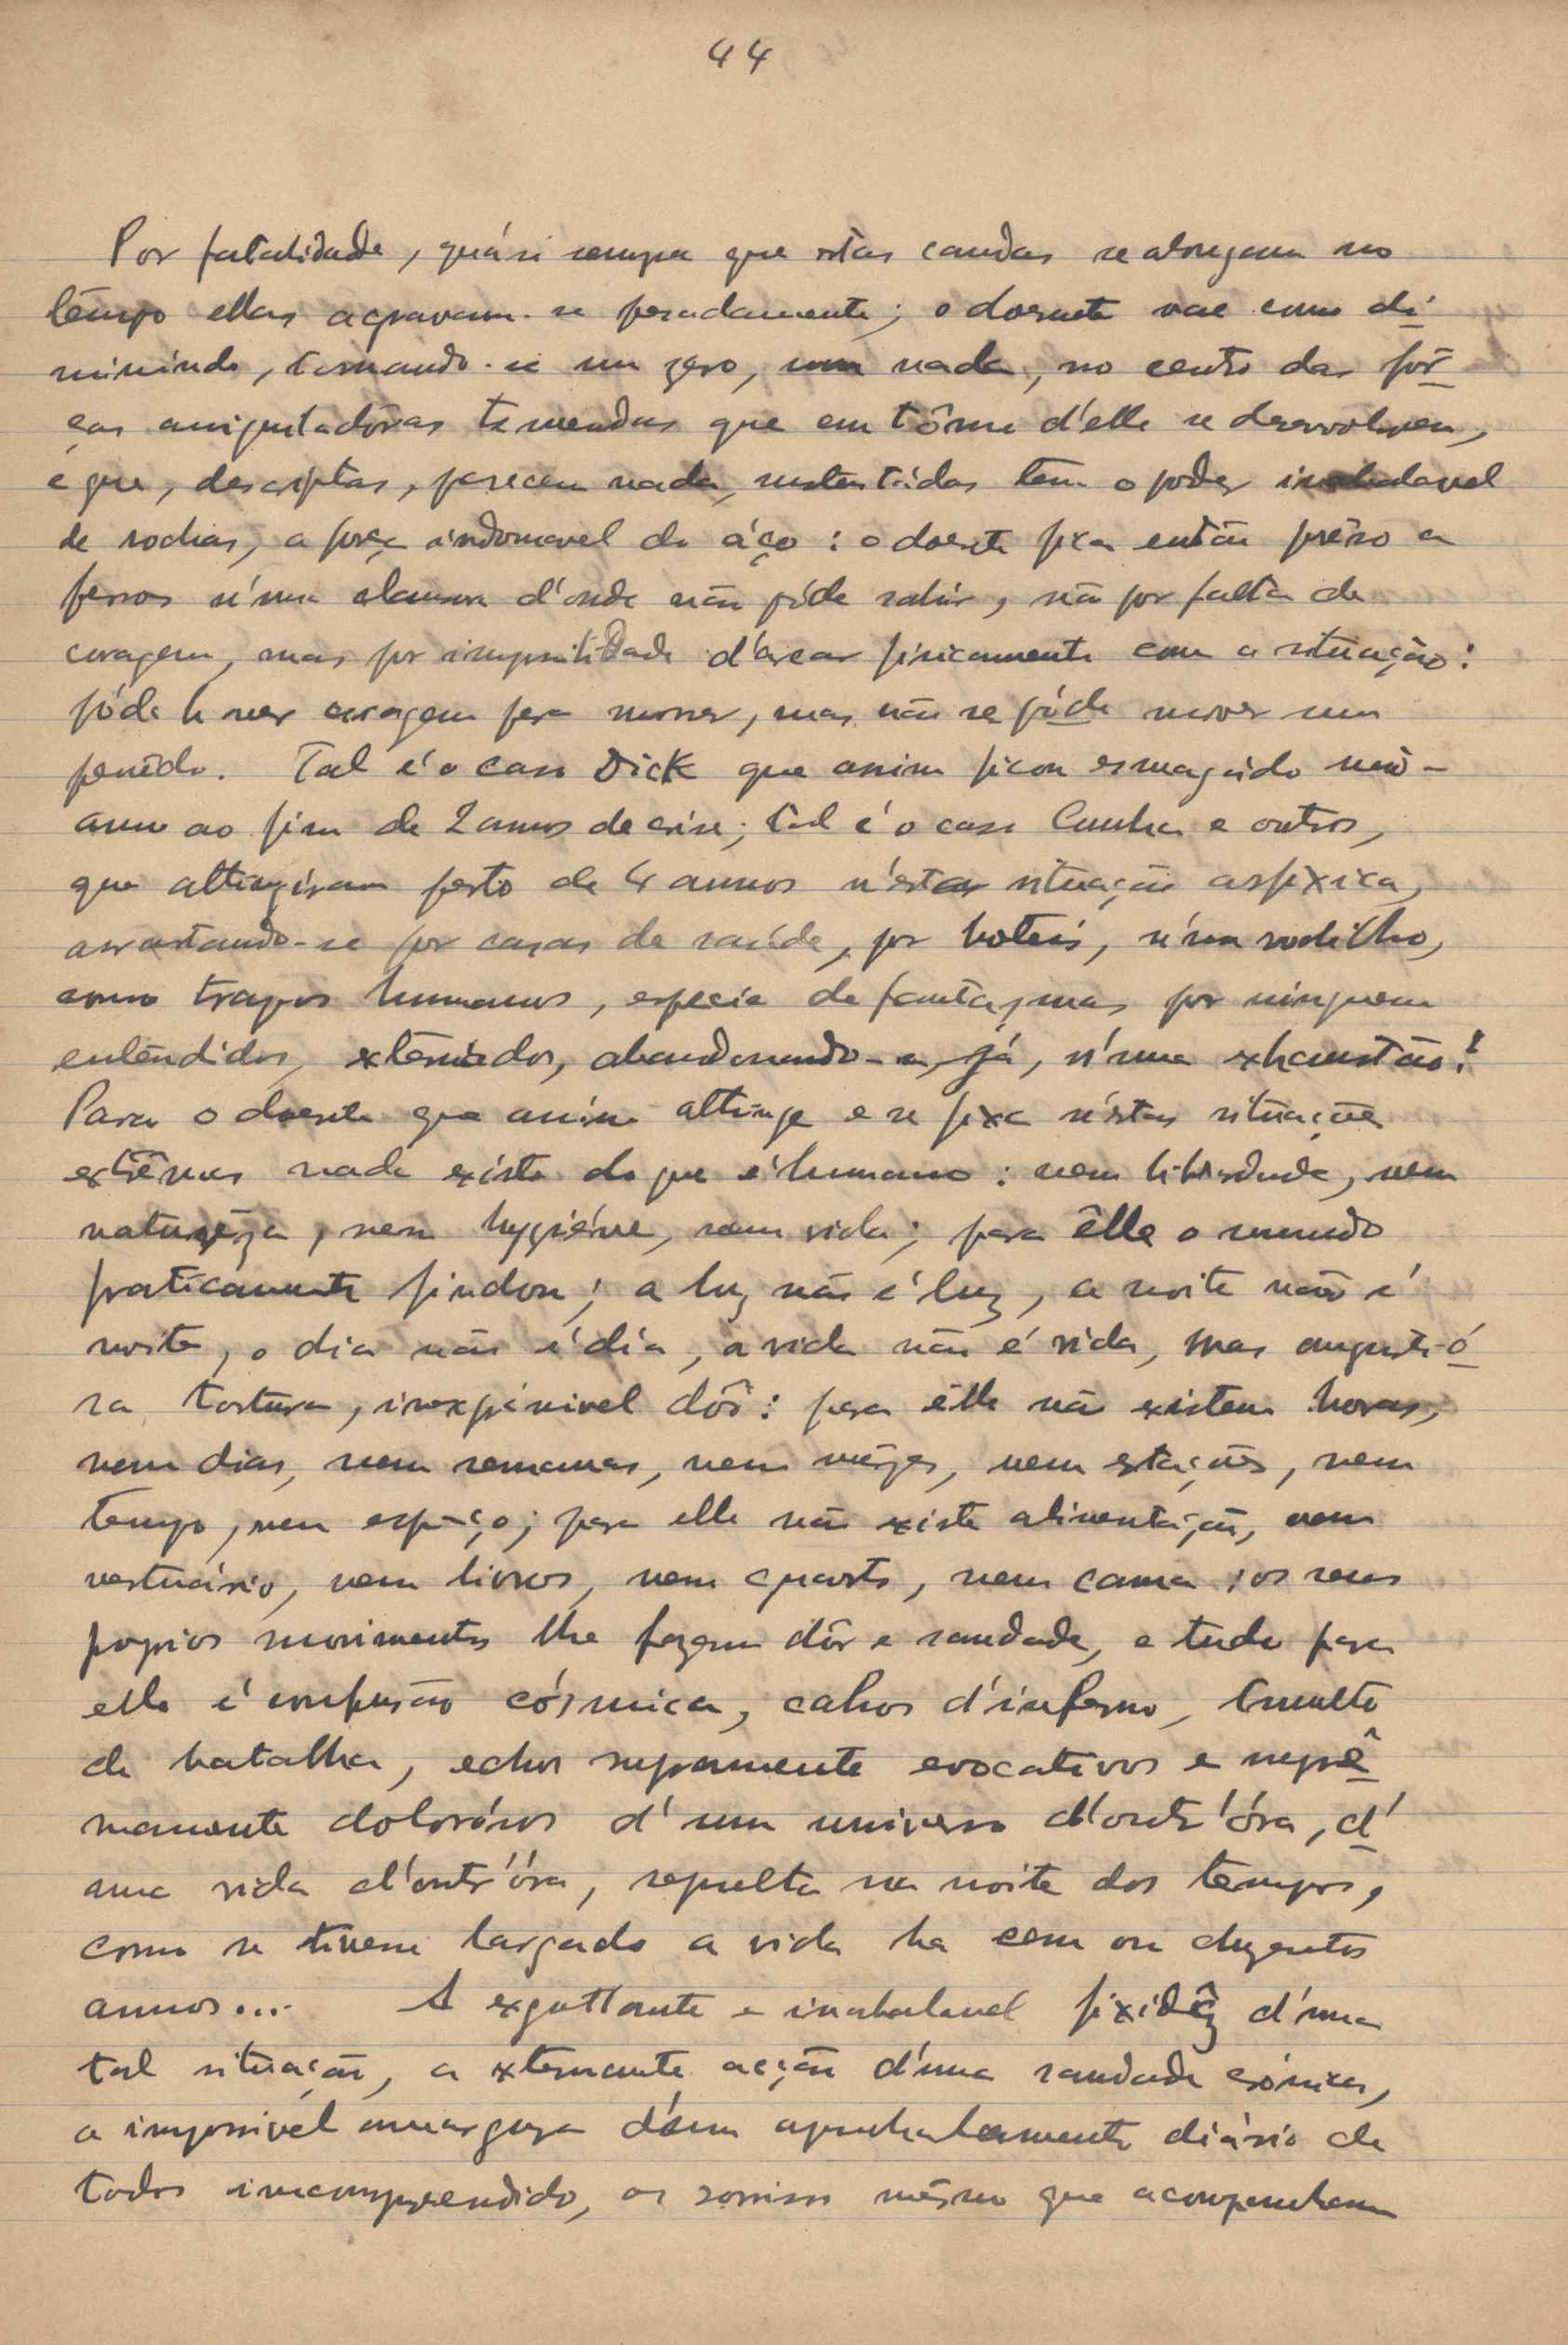 44
Por fatalidade, quási sempre que estas caudas se alongam no
tempo ellas agravam-se pesadamente; o doente vae como di-
minindo, tornando-se um zero, um nada, no centro das fôr-
ças aniquiladôras tremendas que em tôrno d'elle se desenvolvem,
e que, descriptas, parecem nada, sustentádas tem o poder inabalavel
de rochas, a força indomavel do áço: o doente fica então prêso a
ferros n'uma clausura d'onde não póde sahir, não por falta de
coragem, mas por impossibilidade d'arcar fisicamente com a situação:
póde haver coragem para morrer, mas não se póde mover um
penêdo. Tal é o caso Dick que assim ficou esmagado
ao fim de 2 annos de crise; tal é o caso Cunha e outros,
que attingiram perto de 4 annos n'esta situação asfixica,
arrastando-se por casas de saúde, por hoteis, n'um rodilho,
como trapos humanos, especie de fantasmas por ninguem
entendidos, extenuados, abandonando-se, já, n'uma exhaustão!
Para o doente que assim attinge e se fixa n'estas situações
extrêmas nada existe do que é humano: nem liberdade, nem
naturêza, nem hygiéne, nem vida; para êlle o mundo
praticamente findou; a luz não é luz, a noite não é
noite, o dia não é dia, a vida não é vida, mas angusti-ó
sa tortura, inexprimivel dôr: para êlle não existem horas,
nem dias, nem semanas, nem mêzes, nem estações, nem
tempo, nem espaço; para elle não existe alimentação, nem
vestuário, nem livros, nem quarto, nem cama; os seus
proprios movimentos lhe fazem dôr e saudade, e tudo para
elle é confusão cósmica, cahos d'inferno, tumulto
de batalha, echos supremamente evocativos e suprê
mamente dolorósos d'um universo d'outr'óra, d'
uma vida d'outr'óra, sepulta na noite dos tempos,
como se tivesse largado a vida ha cem ou duzentos
annos... A exgottante e inabalavel fixidêz d'uma
tal situação, a extenuante acção d'uma saudade crónica,
a impossivel amargura d'um apunhalamento diário de
todos incomprendido, os sorrisos mêsmo que acompanham